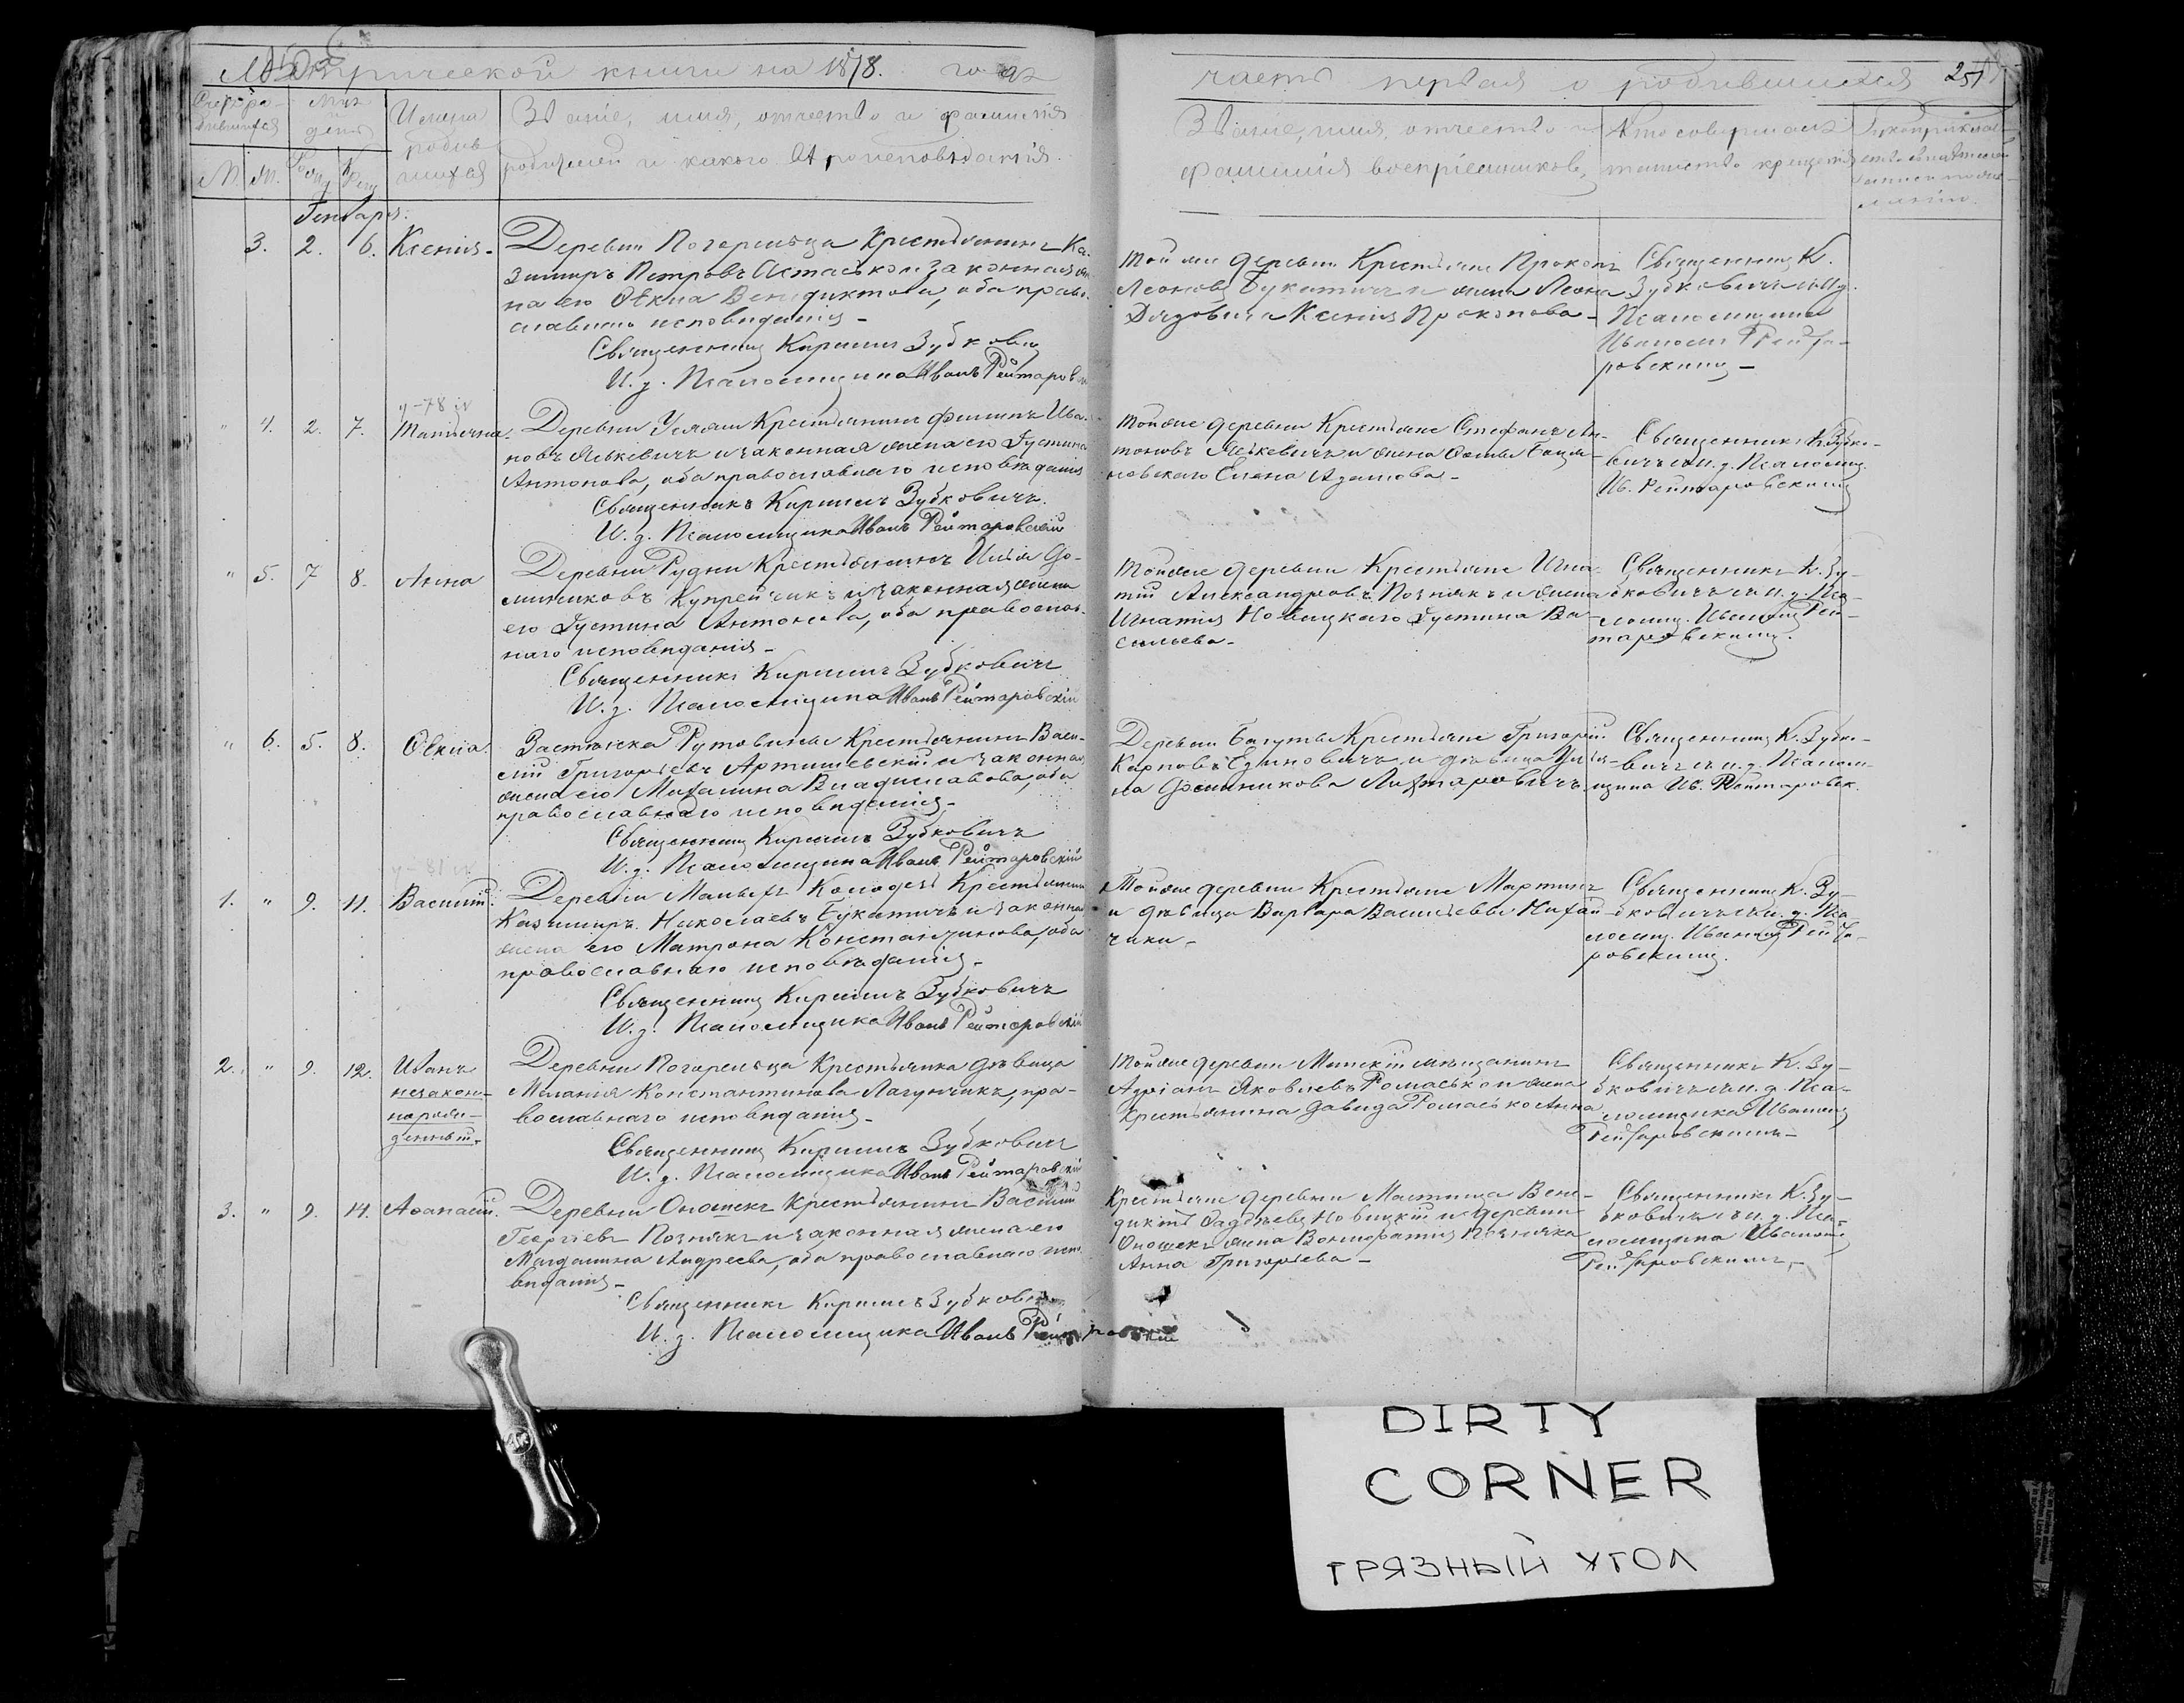 Метрической книги на 1878. годъ
часть первая о родившихся 251
Счетъ ро-
дившихся
Мѣс.
и
день
Имена
родив
шихся
Званіе, имя, отчество и фамилія
родителей и какого вѣроисповѣданія.
Званіе, имя, отчество и
фамилія воспріемниковъ,
Кто совершалъ
таинство крещенія
М. Ж.
Генваря.
3. 2. 6. Ксенія-
Деревни Погорельца Крестьянинъ Ка-
зимиръ Петровъ Астасько и законная же-
на его Ѳекла Венедиктова, оба право-
славнаго исповеданія-
Священникъ Кириллъ Зубкович
И. д. Псаломщика Иванъ Рейтаровскій
Той же деревни Крестьяне Прокопъ
Леоновъ Букатичъ и жена Леона
Ксенія Прокопова-
Священникъ К.
Зубковичъ съ и. д.
Псаломщика
Иваномъ Рейта-
ровскимъ-
" 4. 2. 7. Татьяна.
Деревни Крестьянинъ Филипъ Ива-
новъ и законная жена его Іустина
Антонова, оба православнаго исповѣданія
Священникъ Кириллъ Зубковичъ.
И. д. Псаломщика Иванъ Рейтаровскій
Той же деревни Крестьяне Стефанъ Ан-
тоновъ и жена
Елена Адамова-
Священникъ К. Зубко-
вичъ съ и. д. Псаломщ.
Ив. Рейтаровскимъ
" 5. 7 8. Анна
Деревни Рудни Крестьянинъ Илья До-
миниковъ Купрейчикъ и законная жена
его Іустина Антонова, оба православ-
наго исповеданія-
Священникъ Кириллъ Зубковичъ
И. д. Псаломщика Иванъ Рейтаровскій
Той же деревни Крестьяне Игна-
тій Александровъ Познякъ и жена
Игнатія Новицкаго Іустина Ва-
сильева-
Священникъ К. Зу-
бковичъ съ и. д. Пса-
ломщ. Иваномъ Рей-
таровскимъ.
" 6. 5. 8. Ѳекла.
Застѣнка Рутовины Крестьянинъ Васи-
лій Григорьевъ Артишевскій и законная
жена его Михалина Владиславова, оба
православнаго исповеданія-
Священникъ Кириллъ Зубковичъ
И. д. Псаломщика Иванъ Рейтаровскій
Деревни Багуты Крестьяне Григорій
Карповъ Единовичъ и дѣвица Улья-
на Доминикова
Священникъ К. Зубко-
вичъ съ и. д. Псалом-
щика Ив. Рейтаровск.
1. " 9. 11. Василій.
Деревни Малыхъ Колодезь Крестьянинъ
Казимиръ Николаевъ Букатичъ и законная
жена его Матрона Константинова, оба
православнаго исповѣданія-
Священникъ Кириллъ Зубковичъ
И. д. Псаломщика Иванъ Рейтаровскій
Той же деревни Крестьяне Мартинъ
и дѣвица Варвара Васильевы Михай-
чики-
Священникъ К. Зу-
бковичъ съ и. д. Пса-
ломщ. Иваномъ Рейта-
ровскимъ.
2. " 9. 12. Иванъ
незакон-
норож-
денный.
Деревни Погорельца Крестьянка дѣвица
Меланія Константинова Лагунчикъ, пра-
вославнаго исповеданія-
Священникъ Кириллъ Зубковичъ
И. д. Псаломщика Иванъ Рейтаровскій
Той же деревни Минскій мѣщанинъ
Яковлевъ Ромасько и жена
Крестьянина Давида Ромасько Анна
Священникъ К. Зу-
бковичъ съ и. д. Пса-
ломщика Иваномъ
Рейтаровскимъ-
3. " 9. 14. Аѳанасій.
Деревни Оношекъ Крестьянинъ Василій
Георгіевъ Познякъ и законная жена его
Магдалина Андреева, оба православнаго испо-
веданія-
Священникъ Кириллъ Зубкович
И. д. Псаломщика Иванъ Рейтаровскій
Крестьяне деревни Мастица Вене-
диктъ Ѳаддѣевъ Новицкій и деревни
Оношекъ жена Вонифатія Позняка
Анна Григорьева-
Священникъ К. Зу-
бковичъ съ и. д. Пса-
ломщика Иваномъ
Рейтаровскимъ-
DIRTY
CORNER
ГРЯЗНЫЙ УГОЛ